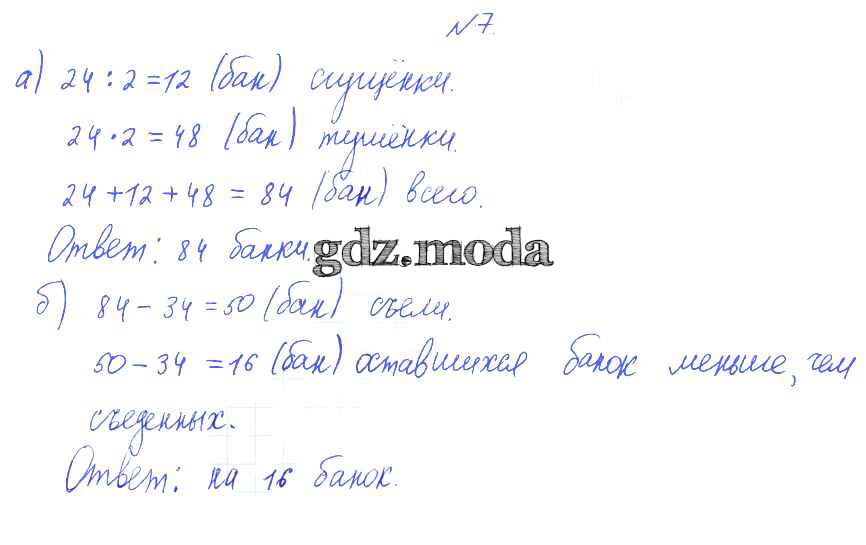 №7.
а) 24 : 2 = 12 (бан) сгущёнки.
24 · 2 = 48 (бан) тушёнки.
24 + 12 + 48 = 84 (бан) всего.
Ответ: 84 банки.
gdz.moda
б) 84 - 34 = 50 (бан) съели.
50 - 34 = 16 (бан) оставшихся банок меньше, чем
съеденных.
Ответ: на 16 банок.